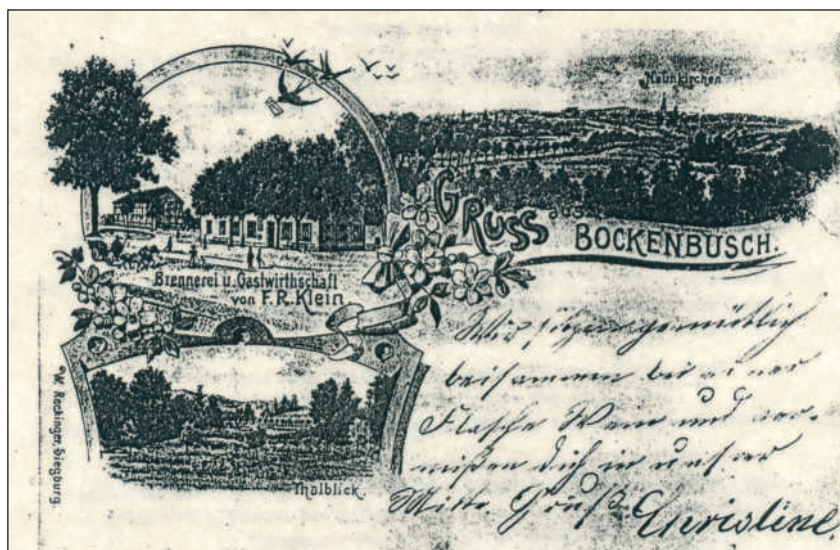 Neunkirchen
GRUSS aus
BOCKENBUSCH.
Brennerei u. Gastwirthschaft
von F. R. Klein
Thalblick.
W. Reckinger, Siegburg.
Wir sitzen gemütlich
beisammen bei einer
Flasche Wein und ver-
mißen dich in unserer
Mitte. Gruß Christine